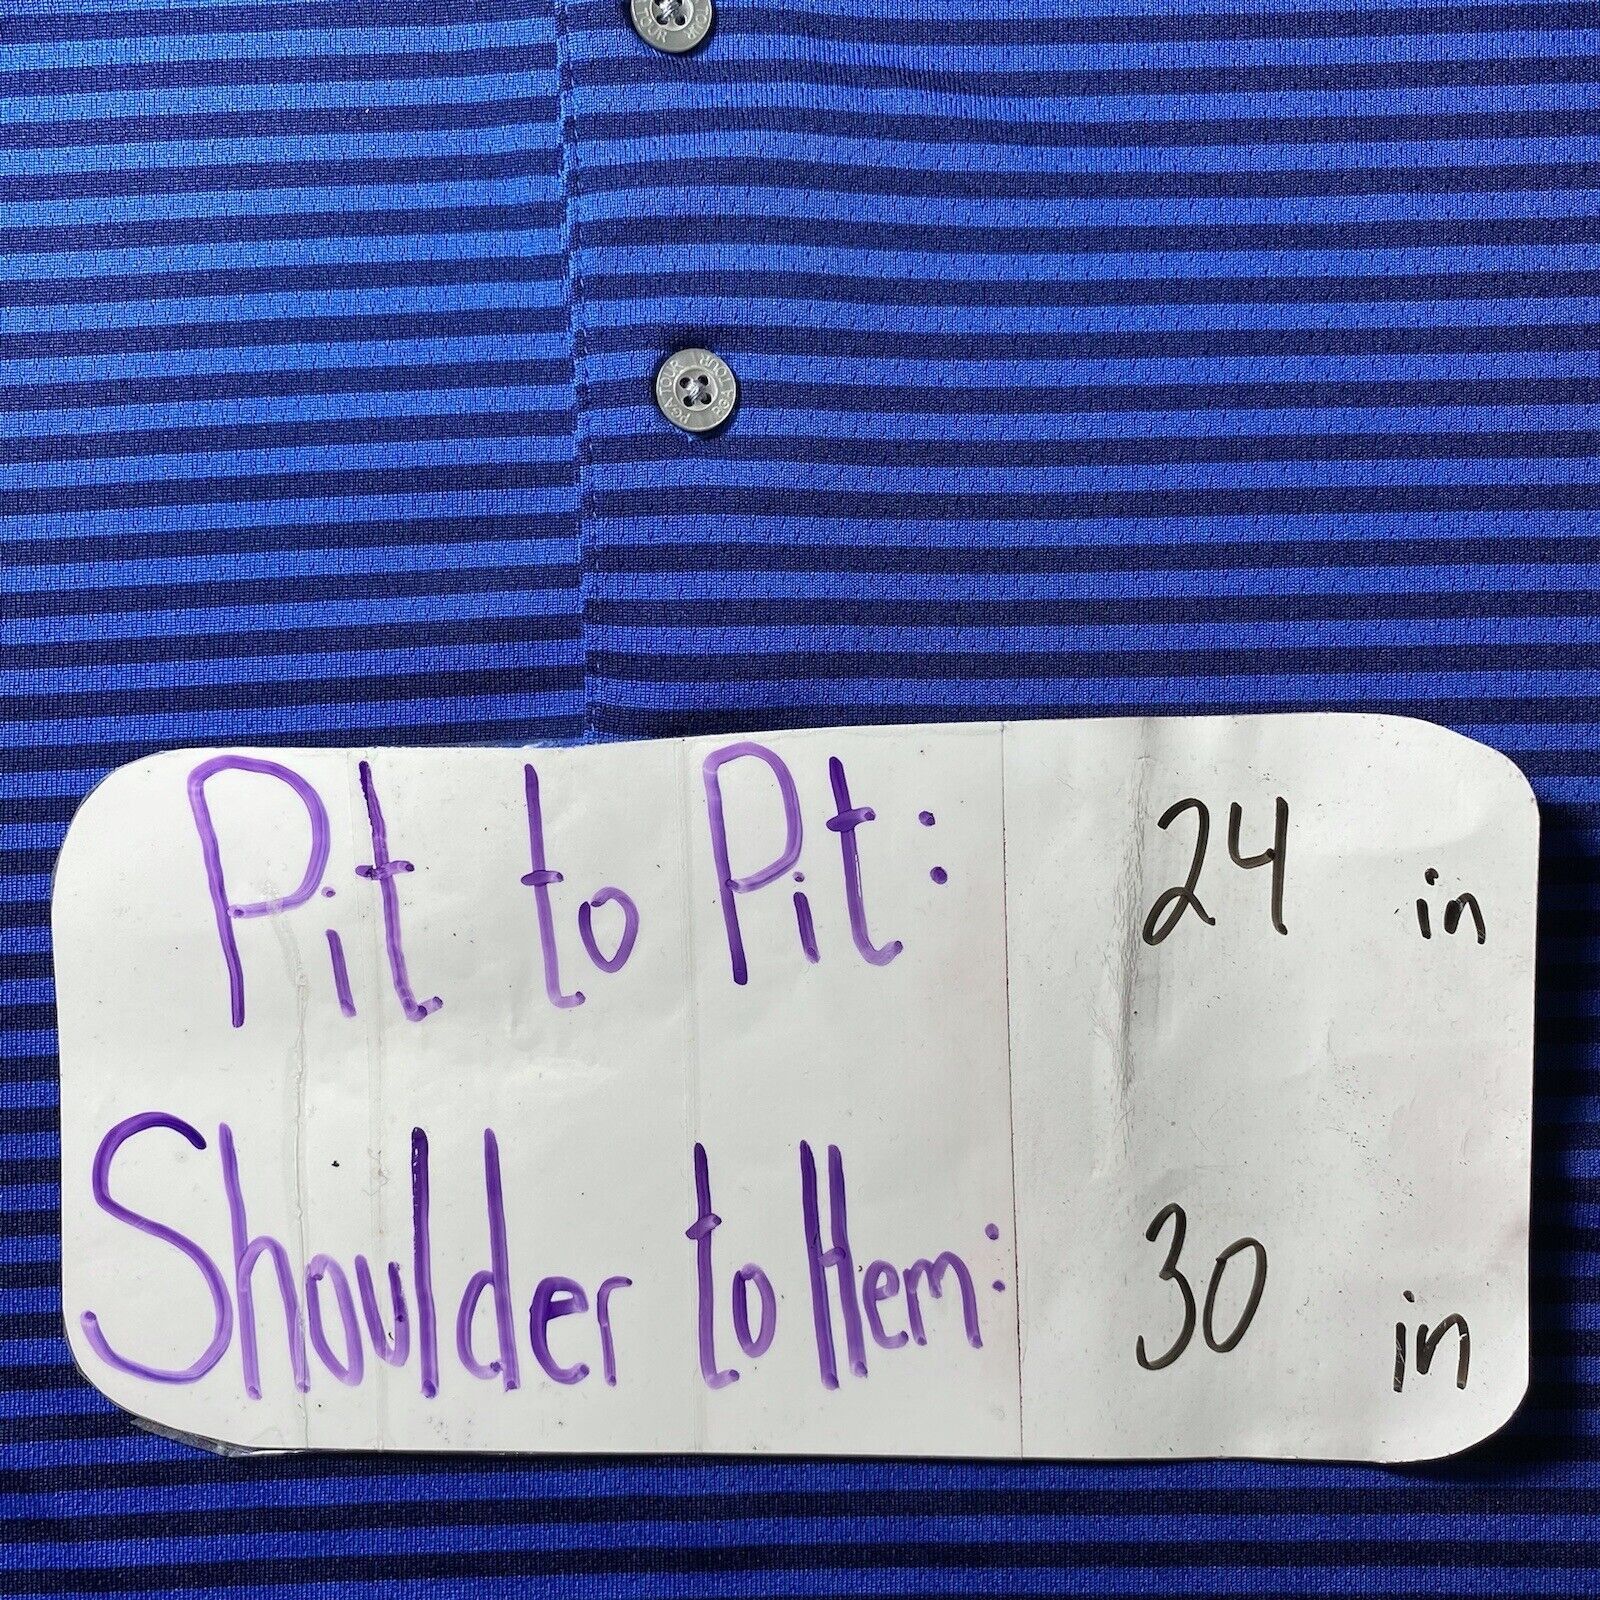 TOUR TOUR
PGA TOUR PGA TOUR
Pit to Pit: 24 in
Shoulder to Hem: 30 in